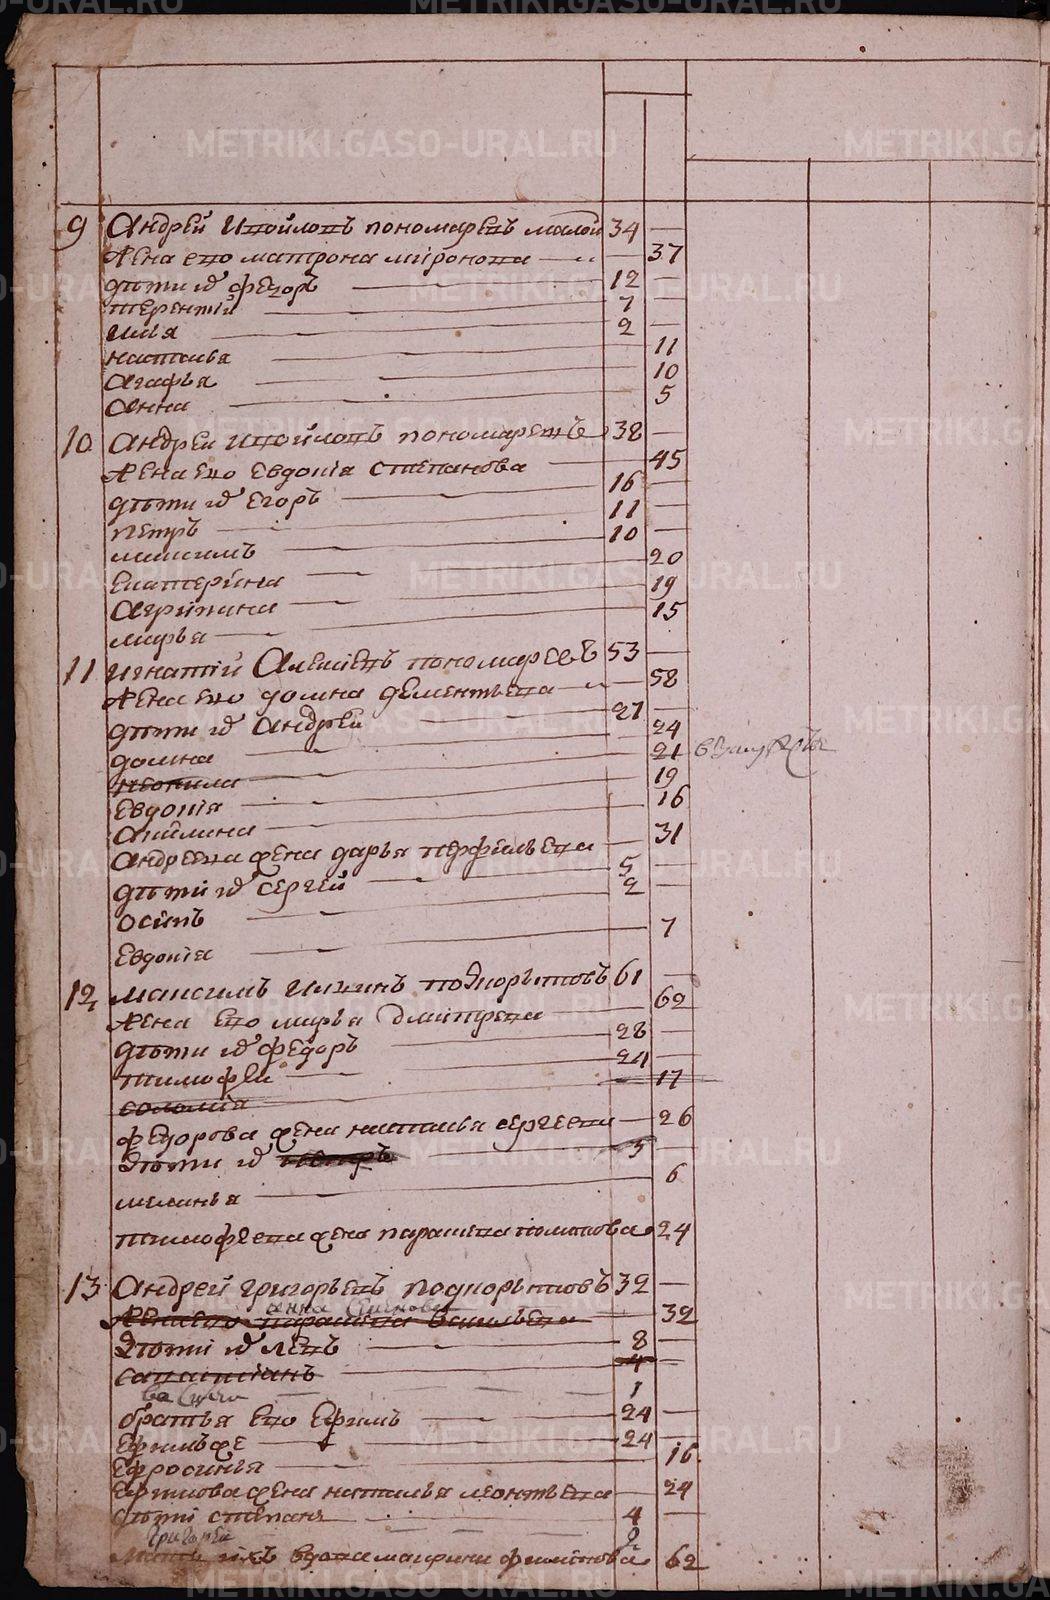 9 Андрей Измойловъ пономаревъ малой 34 —
Жена ево матрона миронова — — 37
дѣти ихъ федоръ — 12 —
терентий — 7 —
илия — 2 —
наталья — 11
Агафья — 10
Анна — 5
10 Андреи Измойловъ пономаревъ 38 —
Жена ево Евдокія степанова — 45
дѣти ихъ Егоръ — 16 —
петръ — 11 —
максимъ — 10 —
Екатерина — 20
Агрипина — 19
марья — 15
11 игнатій Алексіевъ пономаревъ 53 —
Жена ево домна дементьева — 58
дѣти ихъ Андрей — 27 —
домна — 24
неонила — 21 в замужстве
Евдокія — 19
Акилина — 16
Андреева жена дарья перфильева — 31
дѣти ихъ сергей — 5 —
осипъ — 2 —
Евдокія — 7
12 максимъ Ильинъ подкорытовъ 61 —
Жена ево марья дмитрева — 62
дѣти ихъ федоръ — 28 —
тимофеи — 21 —
соломія — 17
федорова жена наталья сергеева — 26
дѣти ихъ петръ — 5
меланья — 6
тимофеева жена 24
13 Андрей григорьевъ подкорытовъ 32 —
анна
Жена ево парасковья васильева — 32
дѣти ихъ левъ — 8 —
4 —
— 1
братья ево Ефимъ — 24 —
Ефимъ же — 24 —
Ефросинья — 16
Ефимова жена наталья леонтьева — 24
дѣти степанъ — 4 —
Григорей — 2
мать ихъ вдова 62
METRIKI.GASO-URAL.RU